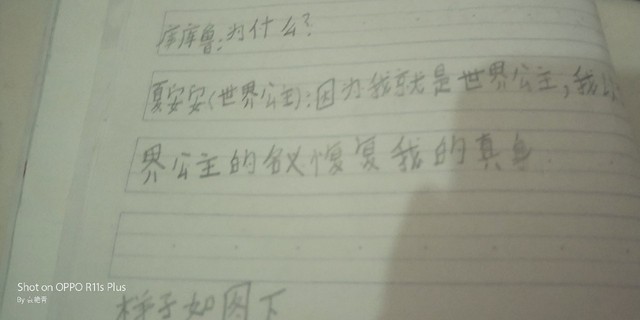 库库鲁:为什么?
夏安安(世界公主):因为我就是世界公主,我以
界公主的义恢复我的真身
样子如图下
Shot on OPPO R11s Plus
By